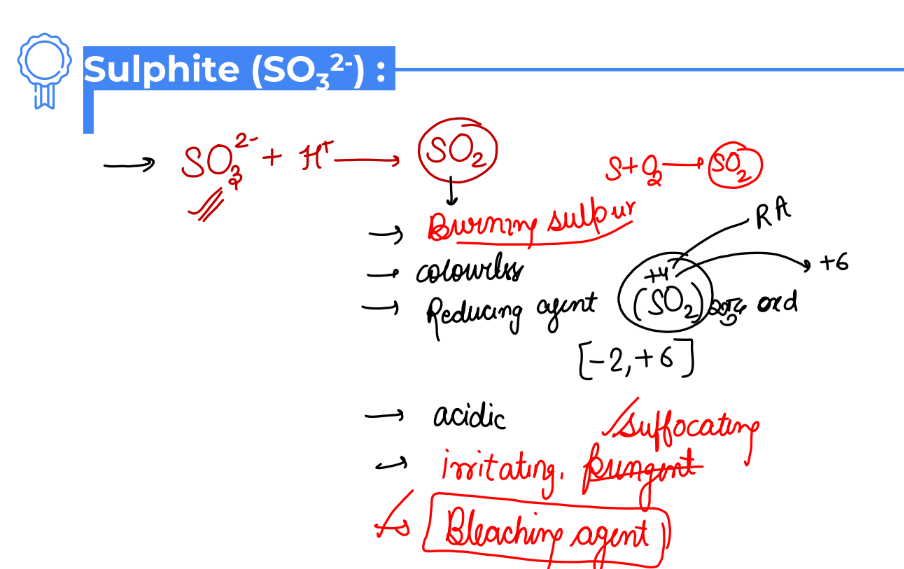 Sulphite (SO₃²⁻) :
→ SO₃²⁻ + H⁺ → SO₂
S+O₂ → SO₂
→ Burning sulpur
RA
→ colourless
+4 → +6
→ Reducing agent (SO₂) oxd
[-2, +6]
→ acidic
suffocating
→ irritating, pungent
→ Bleaching agent